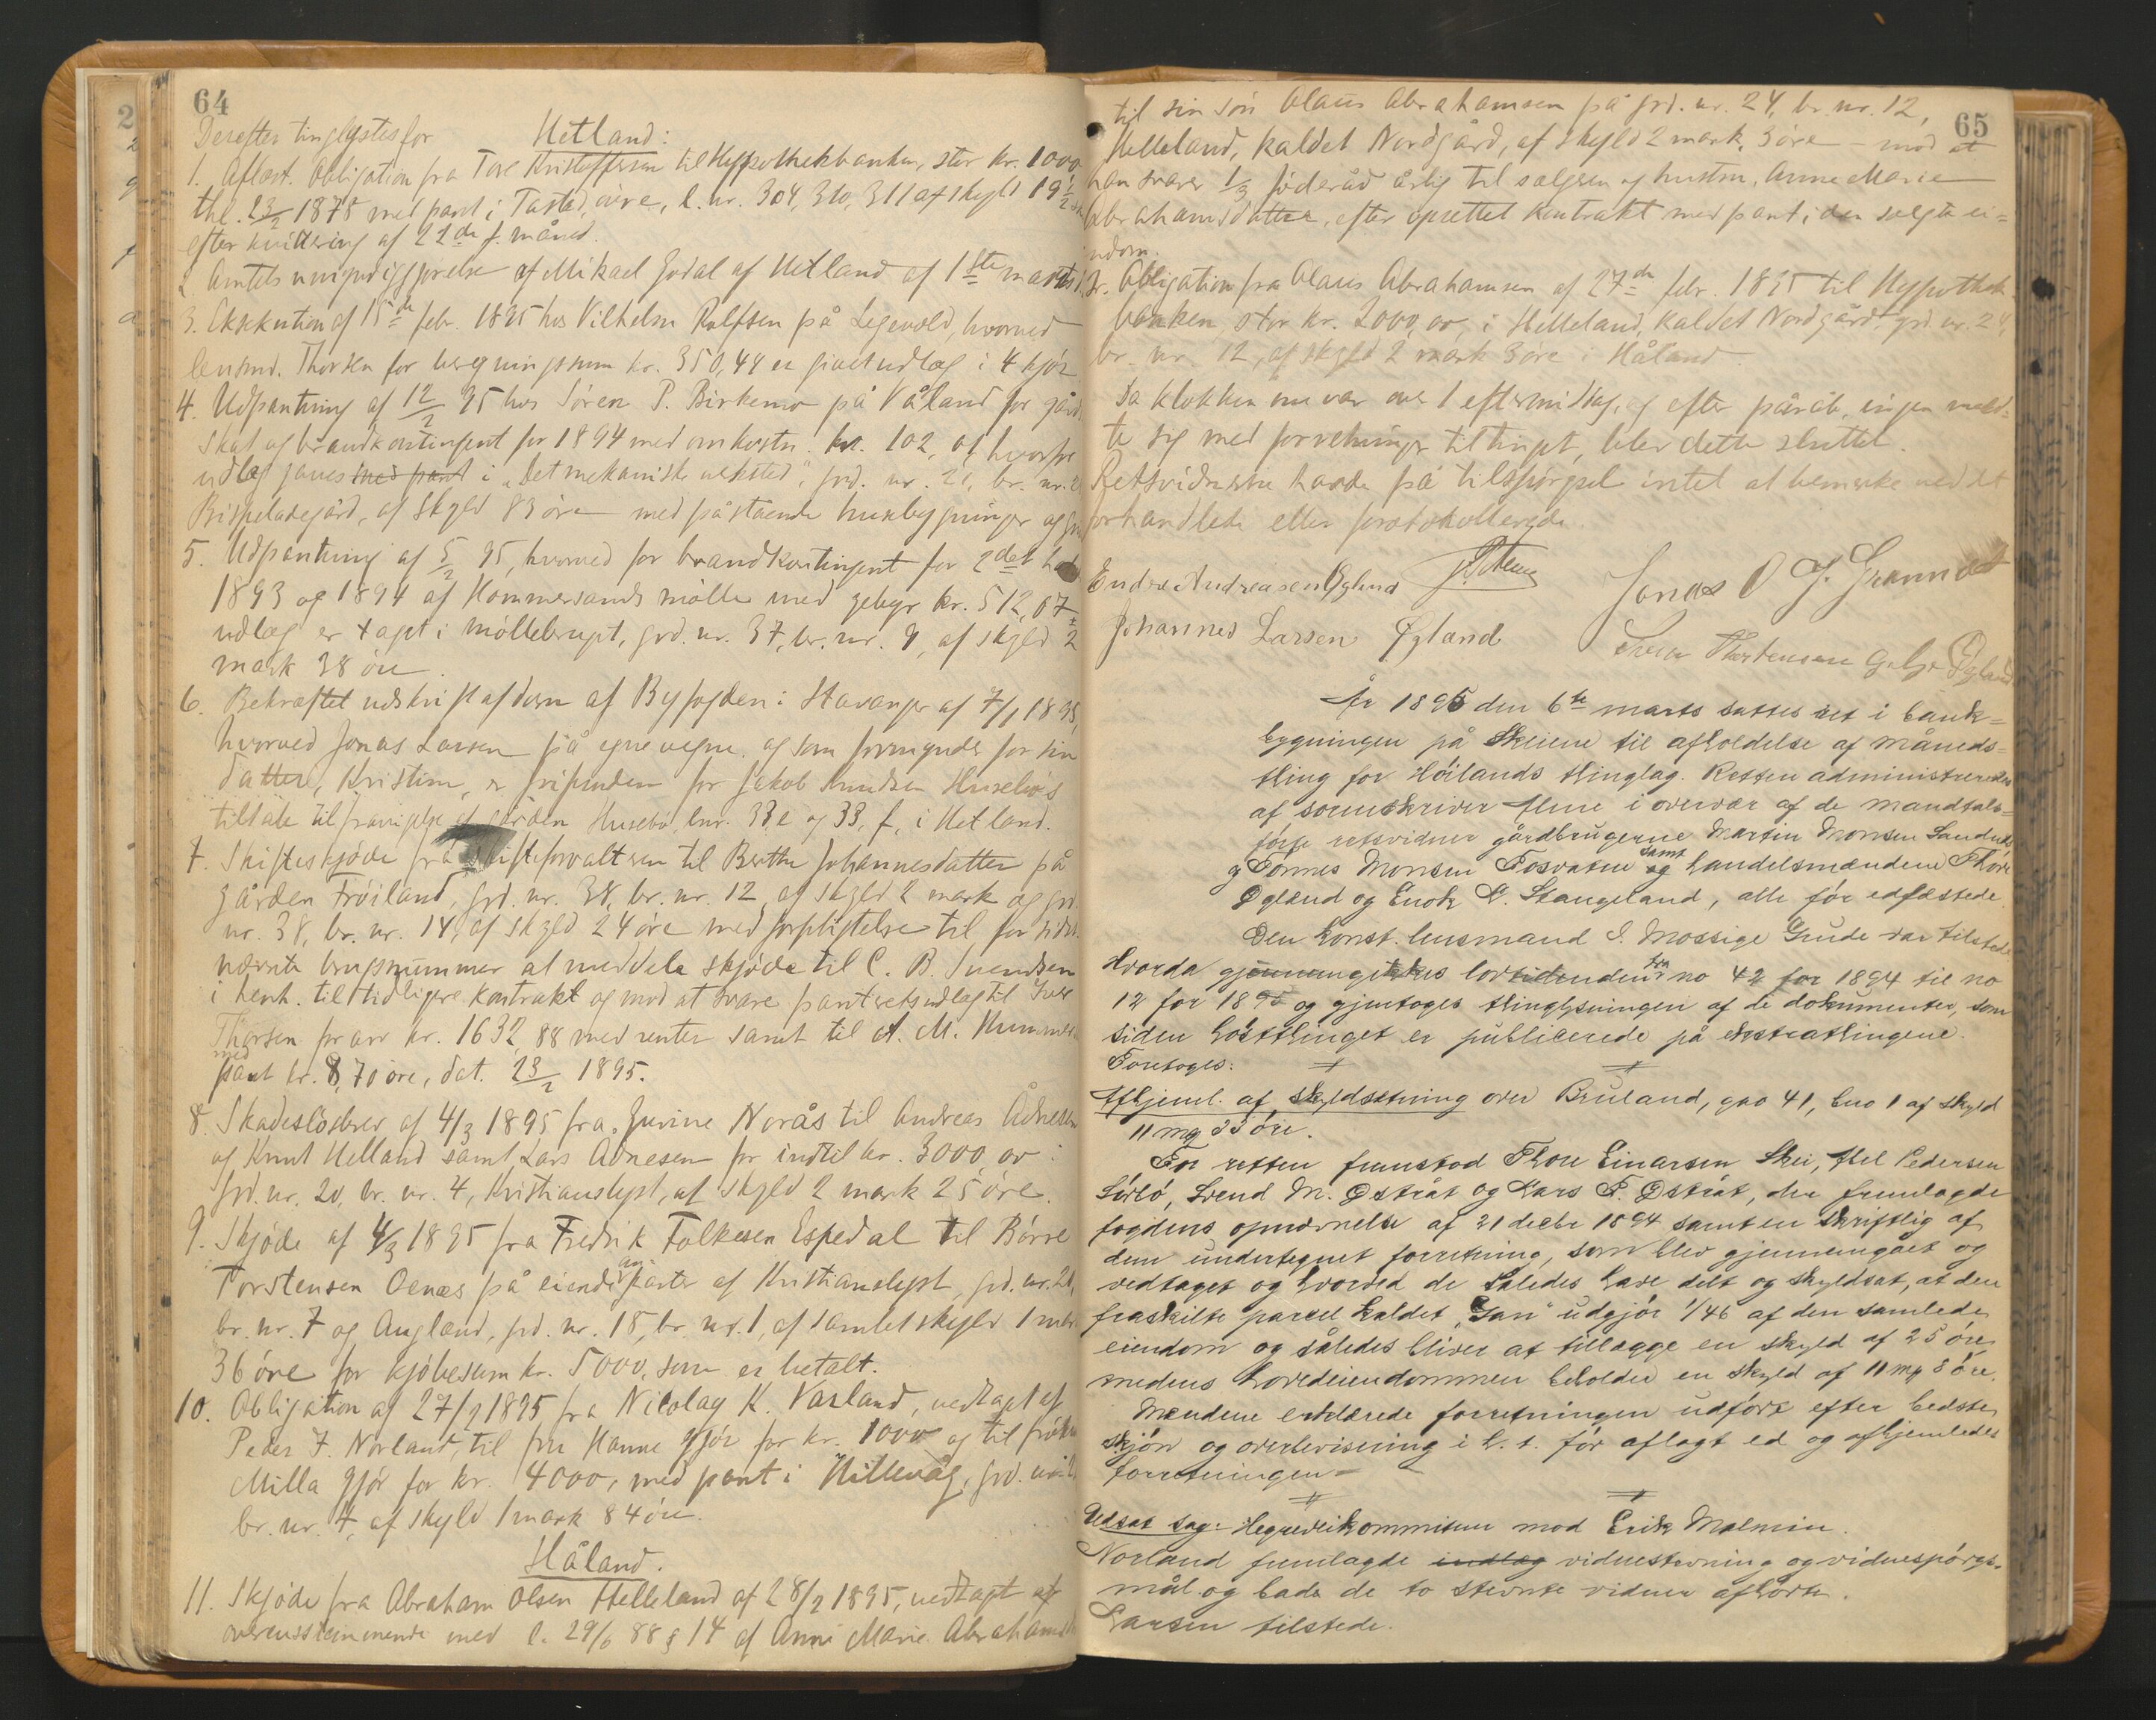 64
Derefter tinglystes for Hetland:
1. Aflæst. Obligation fra Tore Kristoffersen til Hypothekbanken, stor kr. 1000
thl. 23/2 1878 med pant i Tasted, øvre, l. nr. 304, 310, 311 af skyld 19 1/2
efter kvittering af 22de f. måned.
2. Amtets umyndiggjørelse af Mikael Godal af Hetland af 1ste marts
3. Eksekution af 15de febr. 1895 hos Vilhelm Rolfsen på Legevold, hvorved
lensmd. Thorsen for bergningssum kr. 350,44 er givet udlæg i 4 kjør
4. Udpantning af 12/2 95 hos Sören P. Birkemo på Våland for gård
skat og brandkontingent for 1894 med omkostn. kr. 102, of hvorfor
udlæg gaves med pant i "Det mekaniske verksted", grd. nr. 21, br. nr. 2
Bispeladegård, af skyld 83 øre med påstående husbygninger og
5. Udpantning af 5/2 95, hvorved for brandkontingent for 2det
1893 og 1894 af Hommersands mölle med gebyr kr. 512,07
udlæg er tagt i möllebrugt, grd. nr. 37, br. nr. 9, af skyld 2
mark 38 öre
6. Bekræftet udskrift af dom af Byfogden i Stavanger af 7/1 1895,
hvorved Jonas Larsen på egne vegne og som formynder for sin
datter, Kristine, er frifunden for Jakob Knudsen Husebös
tiltale til fravigelse af gården Husebö, lnr. 33 e og 33, f, i Hetland.
7. Skifteskjöde fra skifteforvalteren til Berthe Johannesdatter på
gården Fröiland, grd. nr. 38, br. nr. 12 af skyld 2 mark og grd.
nr. 38, br. nr. 14, af skyld 24 öre med forpligtelse til for sidst
nævnte brugsnummer at meddele skjöde til C. B. Svendsen
i henh. til tidligere kontrakt og mod at svare pantretsudlæg til Iver
Thorsen for arv kr. 1632,88 med renter samt til A. M. Hummer
med
pant kr. 8,70 öre, dat. 23/2 1895.
8. Skadeslösbrev af 4/3 1895 fra Gurine Norås til Andreas Ådnesen
og Knut Helland samt Lars Adnesen for indtil kr. 3000,00 i
grd. nr. 20, br. nr. 4, Kristianslyst, af skyld 2 mark 25 öre.
9. Skjöde af 4/3 1895 fra Fredrik Folkesen Espedal til Börre
Torstensen Oenæs på eiendoms parter af Kristianslyst, grd. nr. 20,
br. nr. 7 og Augland, grd. nr. 18, br. nr. 1, af samlet skyld 1 mark
36 öre for kjöbesum kr. 5000, som er betalt.
10. Obligation af 27/2 1895 fra Nicolay K. Varland, vedtaget af
Peder F. Norland, til fru Hanne Gjör for kr. 1000 og til fröken
Milla Gjör for kr. 4000, med pant i Hillevåg, grd. nr.
br. nr. 4, af skyld 1 mark 84 öre.
Håland.
11. Skjöde fra Abraham Olsen Helleland af 28/2 1895, vedtagt af
overensstemmende med l. 29/6 88 § 14 af Anne Marie Abrahamsd
65
til sin sön Olaus Abrahamsen på grd. nr. 24, br. nr. 12,
Helleland, kaldet Nordgård, af skyld 2 mark, 3 öre – mod at
han svarer 1/3 föderåd årlig til sælgeren og hustru, Anne Marie
Abrahamsdatter, efter oprettet kontrakt med pant i den solgte ei=
endom.
12. Obligation fra Olaus Abrahamsen af 27de febr. 1895 til Hypothek
banken, stor kr. 2000,00, i Helleland, kaldet Nordgård, grd. nr. 24,
br. nr. 12, af skyld 2 mark 3 öre i Håland.
Da klokken nu var over 1 eftermiddag, og efter påråb, ingen meld=
te sig med forretninger til tinget, blev dette sluttet.
Retsvidnerne havde på tilspörgsel intet at bemerke ved det
forhandlede eller protokollerede.
Endre Andreasen Øglend
Jonas O J. Grannæs
Johannes Larsen Øgland
Thortensen Øglænd
År 1895 den 6te marts sattes ret i bank=
bygningen på Skeiene til afholdelse af måneds=
thing for Höilands thinglag. Retten administreredes
af sorenskriver Hme i overvær af de mandtals=
förte retsvidner gårdbrugerne Martin Monsen Sandnes
og Tönnes Monsen Fosvatne samt handelsmændene Thore
Øglænd og Enok A. Stangeland, alle för edfæstede.
Den konst. lensmand I. Mossige Grude var tilstede
Hvorda gjennemgikkes lovtidenden fra no 42 for 1894 til no
12 for 1895 og gjentoges thinglysningen af de dokumenter, som
siden hösttinget er publicerede på ekstrathingene.
Foretoges:
Afhjeml. af skyldsætning over Bruland, gno 41, bno 1 af skyld
11 mg 33 öre.
For retten fremstod Thore Einarsen Skei, Abel Pedersen
Sörbö, Svend M. Østråt og Lars P. Østråt, der fremlagde
fogdens opnævnelse af 21 decbr 1894 samt en skriftlig af
dem undertegnet forretning, som blev gjennemgået og
vedtaget og hvorved de således have delt og skyldsat, at den
fraskilte parcel kaldet "Jari" udgjör 1/46 af den samlede
eiendom og således bliver at tillægge en skyld af 25 öre,
medens hovedeiendommen beholder en skyld af 11 mg 8 öre.
Mændene erklærede forretningen udfört efter bedste
skjön og overbevisning i h. t. för aflagt ed og afhjemledes
forretningen =
Udsat sag: Hegnedikommissen mod Erik Malmin.
Norland fremlagde indlæg vidnestevning og vidnespörgs-
mål og bade de to stevnte vidner afhört.
Larsen tilstede.